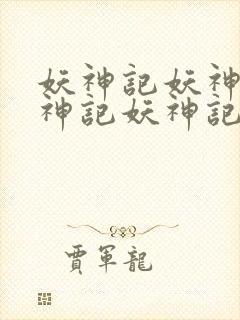 妖神記妖神
神記妖神記
賈軍龍